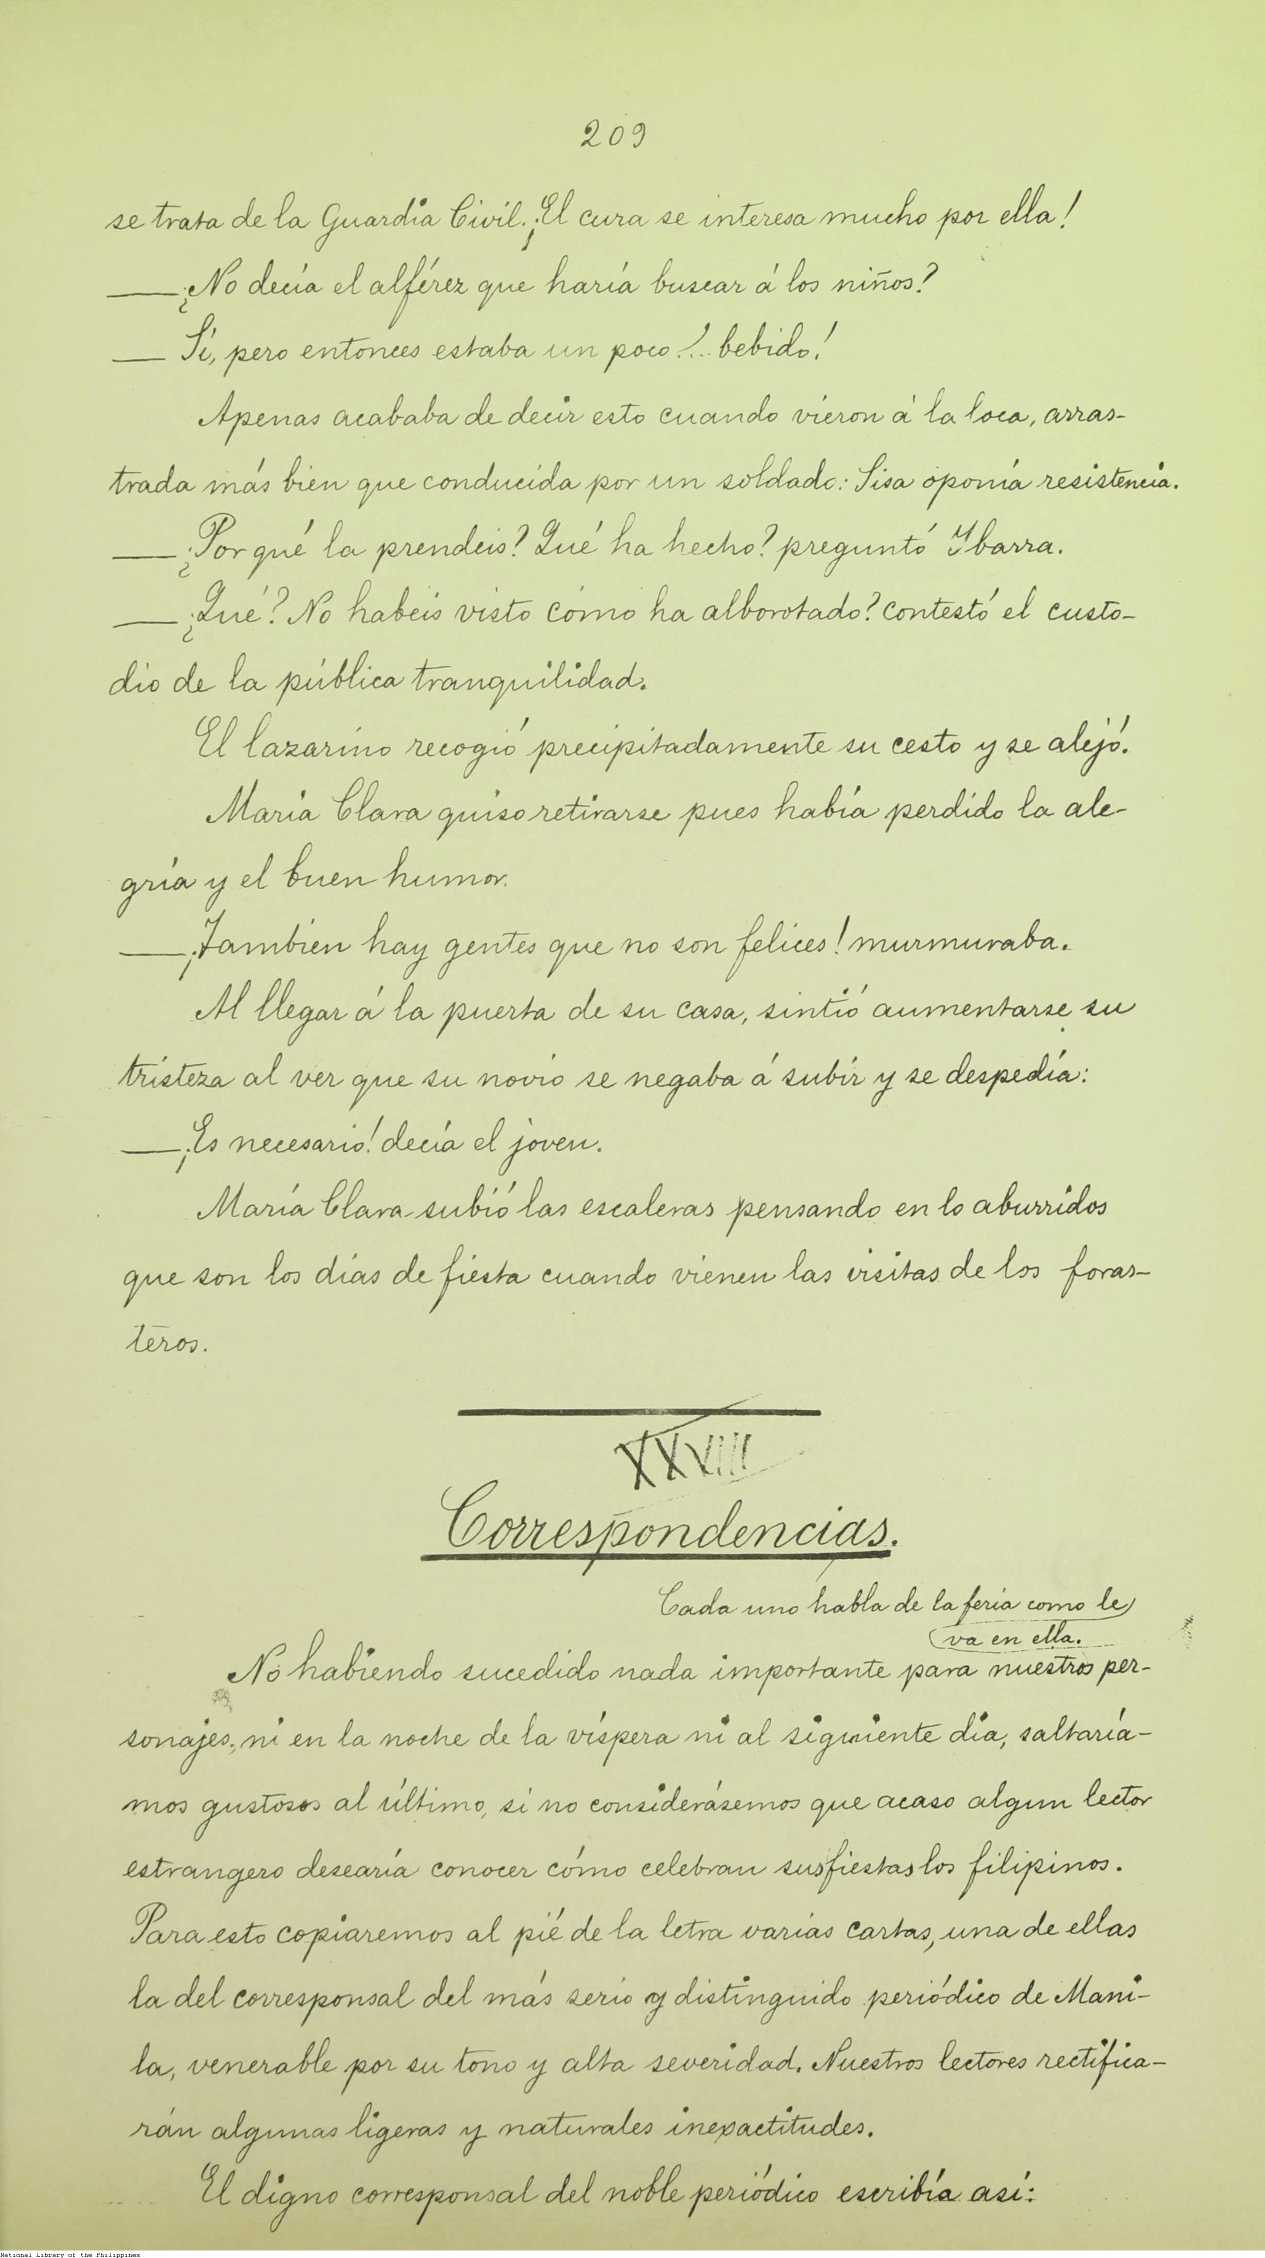 209
se trata de la Guardia Civil. ¡El cura se interesa mucho por ella!
— ¿No decía el alférez que haría buscar á los niños?
— Sí, pero entonces estaba un poco... bebido!
Apenas acababa de decir esto cuando vieron á la loca, arras-
trada más bien que conducida por un soldado: Sisa oponía resistencia.
— ¿Por qué la prendeis? Qué ha hecho? preguntó Ybarra.
— ¿Qué? No habeis visto cómo ha alborotado? contestó el custo-
dio de la pública tranquilidad.
El lazarino recogió precipitadamente su cesto y se alejó.
María Clara quiso retirarse pues había perdido la ale-
gría y el buen humor.
— ¡Tambien hay gentes que no son felices! murmuraba.
Al llegar á la puerta de su casa, sintió aumentarse su
tristeza al ver que su novio se negaba á subir y se despedía:
— ¡Es necesario! decía el joven.
María Clara subió las escaleras pensando en lo aburridos
que son los días de fiesta cuando vienen las visitas de los foras-
teros.
XXVIII
Correspondencias.
Cada uno habla de la feria como le
va en ella.
No habiendo sucedido nada importante para nuestros per-
sonajes, ni en la noche de la víspera ni al siguiente día, saltaría-
mos gustosos al último, si no considerásemos que acaso algun lector
estrangero desearía conocer cómo celebran sus fiestas los filipinos.
Para esto copiaremos al pié de la letra varias cartas, una de ellas
la del corresponsal del más serio y distinguido periódico de Mani-
la, venerable por su tono y alta severidad. Nuestros lectores rectifica-
rán algunas ligeras y naturales inexactitudes.
El digno corresponsal del noble periódico escribía así:
National Library of the Philippines